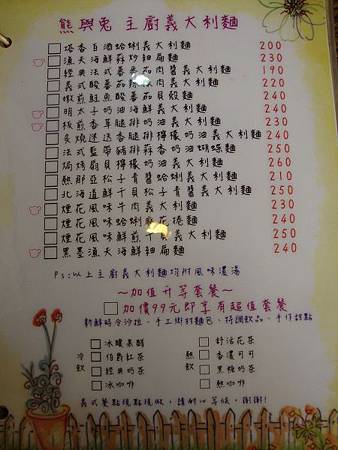 熊與兔 主廚義大利麵
塔香白酒蛤蜊義大利麵 200
漁夫海鮮蒜炒細扁麵 230
經典法式蕃茄肉醬義大利麵 190
義式酸蕃茄 義大利麵 220
嫩煎鮭魚酸蕃茄貝殼麵 240
明太子奶油海鮮義大利麵 240
松煎香草腿排奶油義大利麵 230
炙燒迷迭香腿排檸檬奶油義大利麵 240
法式藍帶豬排蒜香奶油蝴蝶麵 250
焗烤扇貝檸檬奶油義大利麵 260
熱那亞松子青醬蛤蜊義大利麵 210
北海道鮮干貝松子青醬義大利麵 250
煙花風味牛肉義大利麵 230
煙花風味蛤蜊麻花捲麵 240
煙花風味海鮮煎干貝義大利麵 250
黑墨漁夫海鮮細扁麵 240
Ps:以上主廚義大利麵均附風味濃湯
～加值升等套餐～
加價99元即享有超值套餐
新鮮時令沙拉、手工鄉村麵包、特調飲品、手作甜點
冰釀果醋 舒活花茶
冷 伯爵紅茶 熱 香濃可可
飲 經典奶茶 飲 黑糖奶茶
冰咖啡 熱咖啡
義式餐點現點現做，請耐心等候，謝謝!